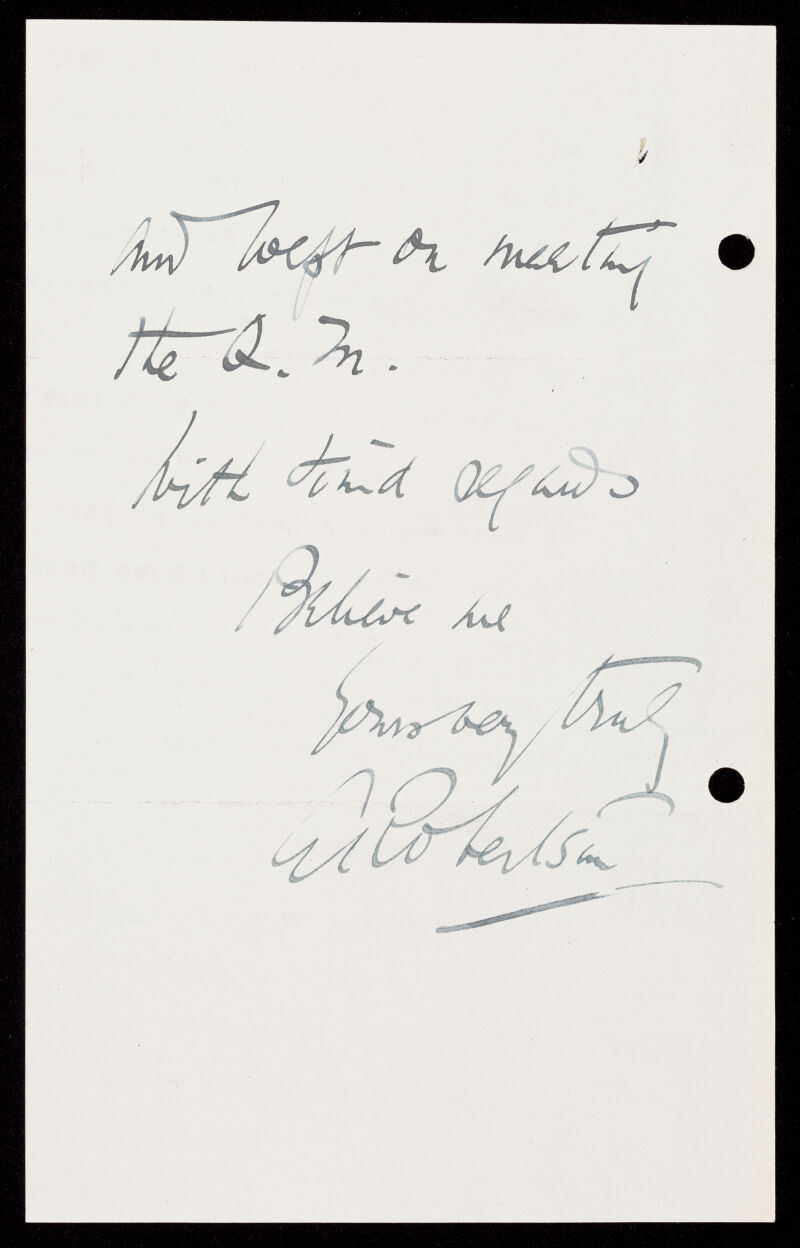 and wept on meeting
the Q. M.
With kind regards
Believe me
Yours very truly
A Robertson